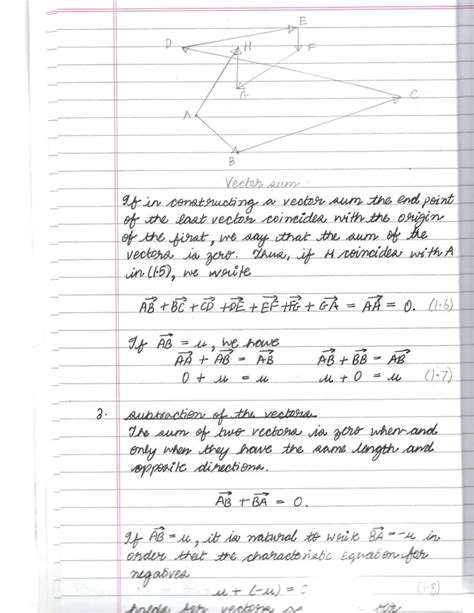 E
D
H
F
G
C
A
B
Vector sum
If in constructing a vector sum the end point
of the last vector coincides with the origin
of the first, we say that the sum of the
vectors is zero. Thus, if H coincides with A
in (1.5), we write
AB + BC + CD + DE + EF + FG + GA = AA = 0. (1.6)
If AB = u, we have
AA + AB = AB AB + BB = AB
0 + u = u u + 0 = u (1.7)
2. subtraction of the vectors.
The sum of two vectors is zero when and
only when they have the same length and
opposite directions.
AB + BA = 0.
If AB = u, it is natural to write BA = -u in
order that the characteristic equation for
negatives
u + (-u) = (1.8)
holds for vectors